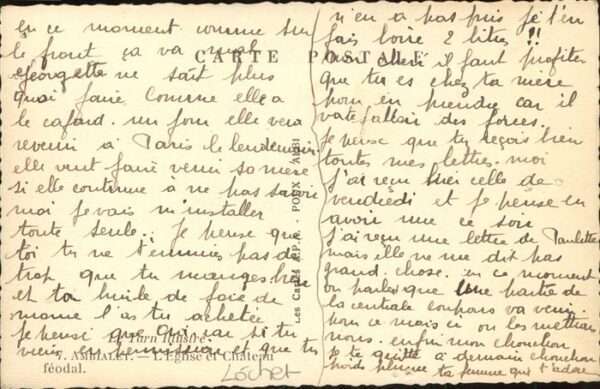 en ce moment comme sur
le front ça va mal
Georgette ne sait plus
quoi faire comme elle a
le cafard. un jour elle vera
revenir à Paris le lendemain
elle veut faire venir sa mère
si elle continue à ne pas savoir
moi je vais m'installer
toute seule. je pense que
toi tu ne t'ennuies pas de
trop que tu manges bien
et ta huile de foie de
morue l'as tu achetée
je pense que oui car si tu
viens en permission et que tu
n'en a pas pris je t'en
fais boire 2 litres !!
mon chéri il faut profiter
que tu es chez ta mère
pour en prendre car il
va te falloir des forces.
je pense que tu reçois bien
toutes mes lettres. moi
j'ai reçu hier celle de
vendredi et je pense en
avoir une ce soir
j'ai reçu une lettre de Paulette
mais elle ne me dit pas
grand chose. en ce moment
on parle que une partie de
la centrale
va venir
pour ce mois ci ou les mettrons
nous. enfin mon chouchou
je te quitte à demain chouchou
ta femme qui t'adore
CARTE POSTALE
Les Cartes A.P.A. - POUX - ALBI
Le Tarn Illustré
7. AMBIALET. — L'Église et Château
féodal.